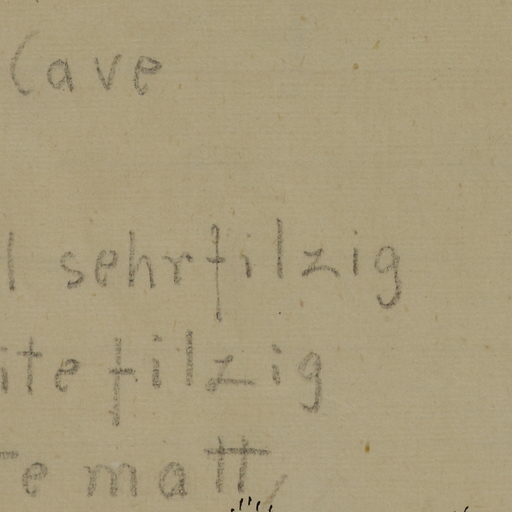 Cave
l sehr filzig
ite filzig
te matt